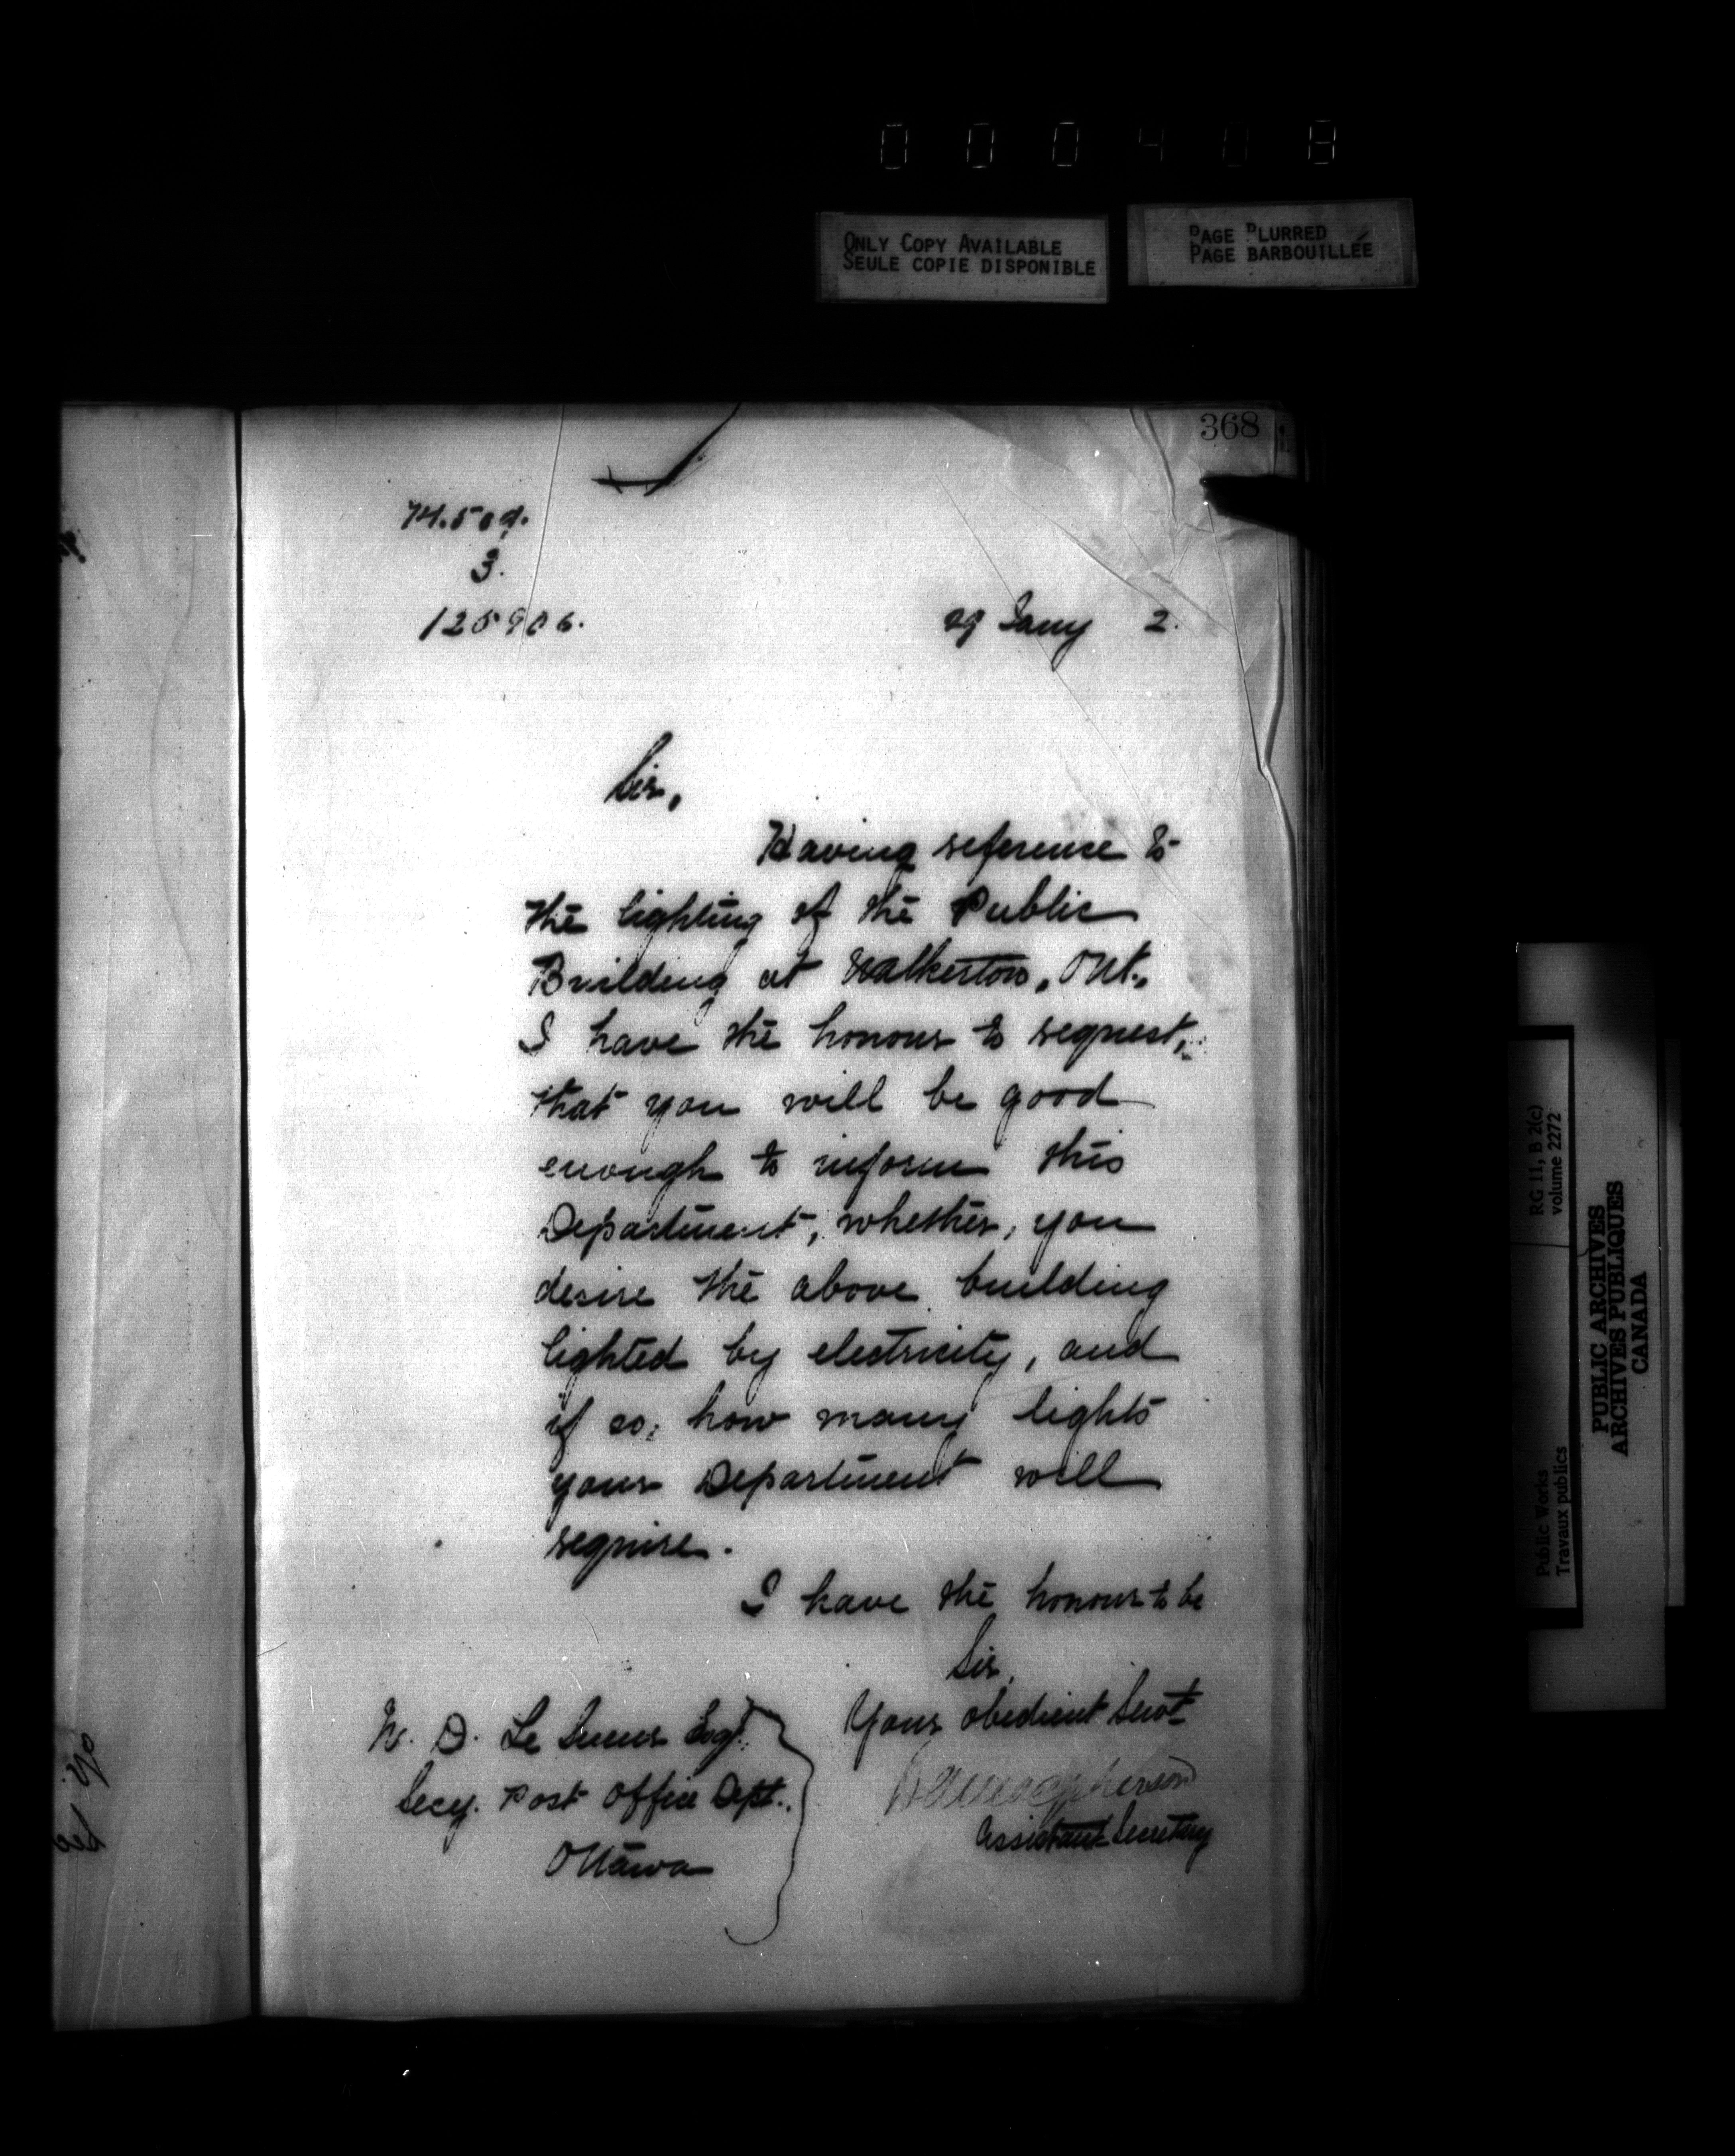 0 0 0 4 0 8
ONLY COPY AVAILABLE
SEULE COPIE DISPONIBLE
PAGE BLURRED
PAGE BARBOUILLÉE
368
3.
125906.
29 Jany 2.
Sir,
Having reference to
the lighting of the Public
Building at Walkerton, Ont.,
I have the honour to request,
that you will be good
enough to inform this
Department, whether, you
desire the above building
lighted by electricity, and
if so, how many lights
your Department will
require.
I have the honour to be
Sir,
Your obedient Servt
W. D. Le Sueur Esqr.
Secy. Post Office Dept.,
Ottawa
Assistant Secretary
RG 11, B 2(c)
volume 2272
Public Works
Travaux publics
PUBLIC ARCHIVES
ARCHIVES PUBLIQUES
CANADA